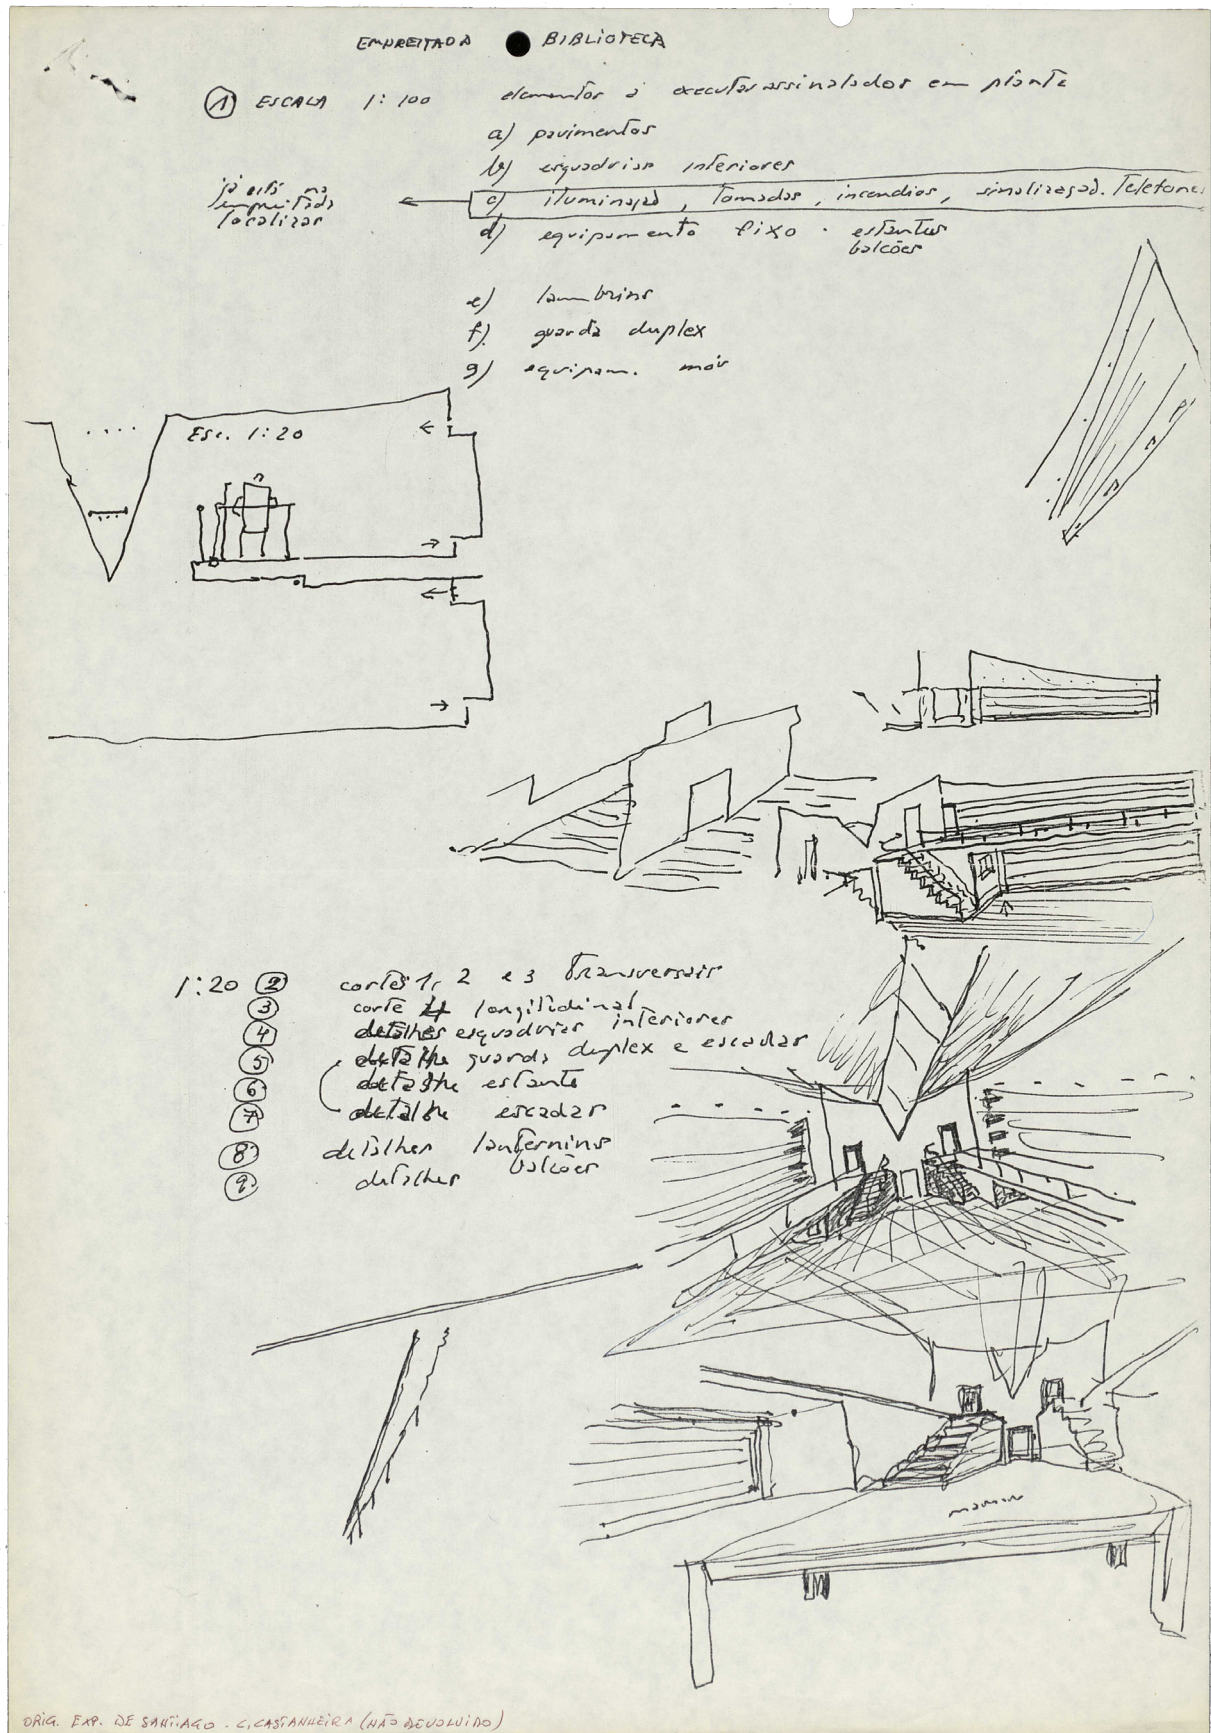 EMPREITADA BIBLIOTECA
1 ESCALA 1:100 elementos a executar assinalados em planta
a) pavimentos
b) esquadrias interiores
c) iluminaçaõ, Tomadas, incendios, sinalizaçaõ. Telefones
já está na
empreitada
localizar
d) equipamento fixo . estantes
balcões
e) lambrins
f) guarda duplex
g) equipam. móv
Esc. 1:20
1:20 2 cortes 1, 2 e 3 Transversais
3 corte 4 longitidinal
4 detalhes esquadrias interiores
5 detalhe guarda duplex e escadas
6 detalhe estante
7 detalhe escadas
8 detalhes lanternins
9 detalhes balcões
ORIG. EXP. DE SANTIAGO - C. CASTANHEIRA (NÃO DEVOLVIDO)